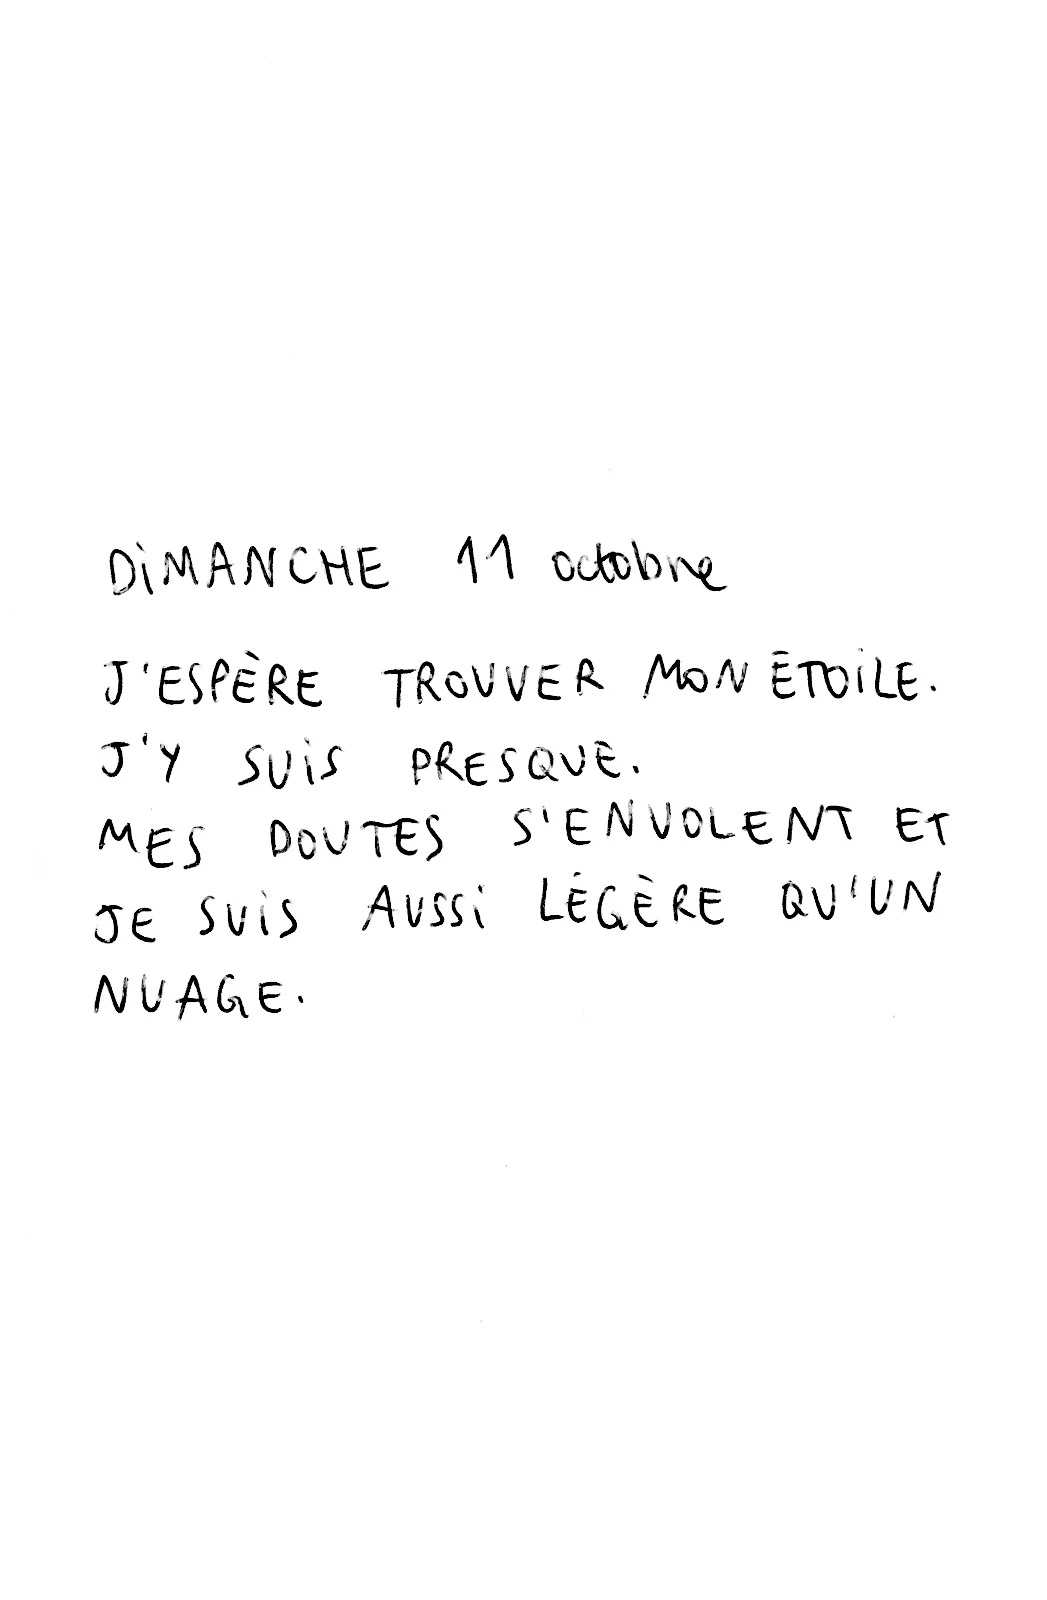 DiMANCHE 11 octobre
J'ESPÈRE TROUVER MON ÉTOiLE.
J'Y SUiS PRESQUE.
MES DOUTES S'ENVOLENT ET
JE SUiS AUSSi LÉGÈRE QU'UN
NUAGE.